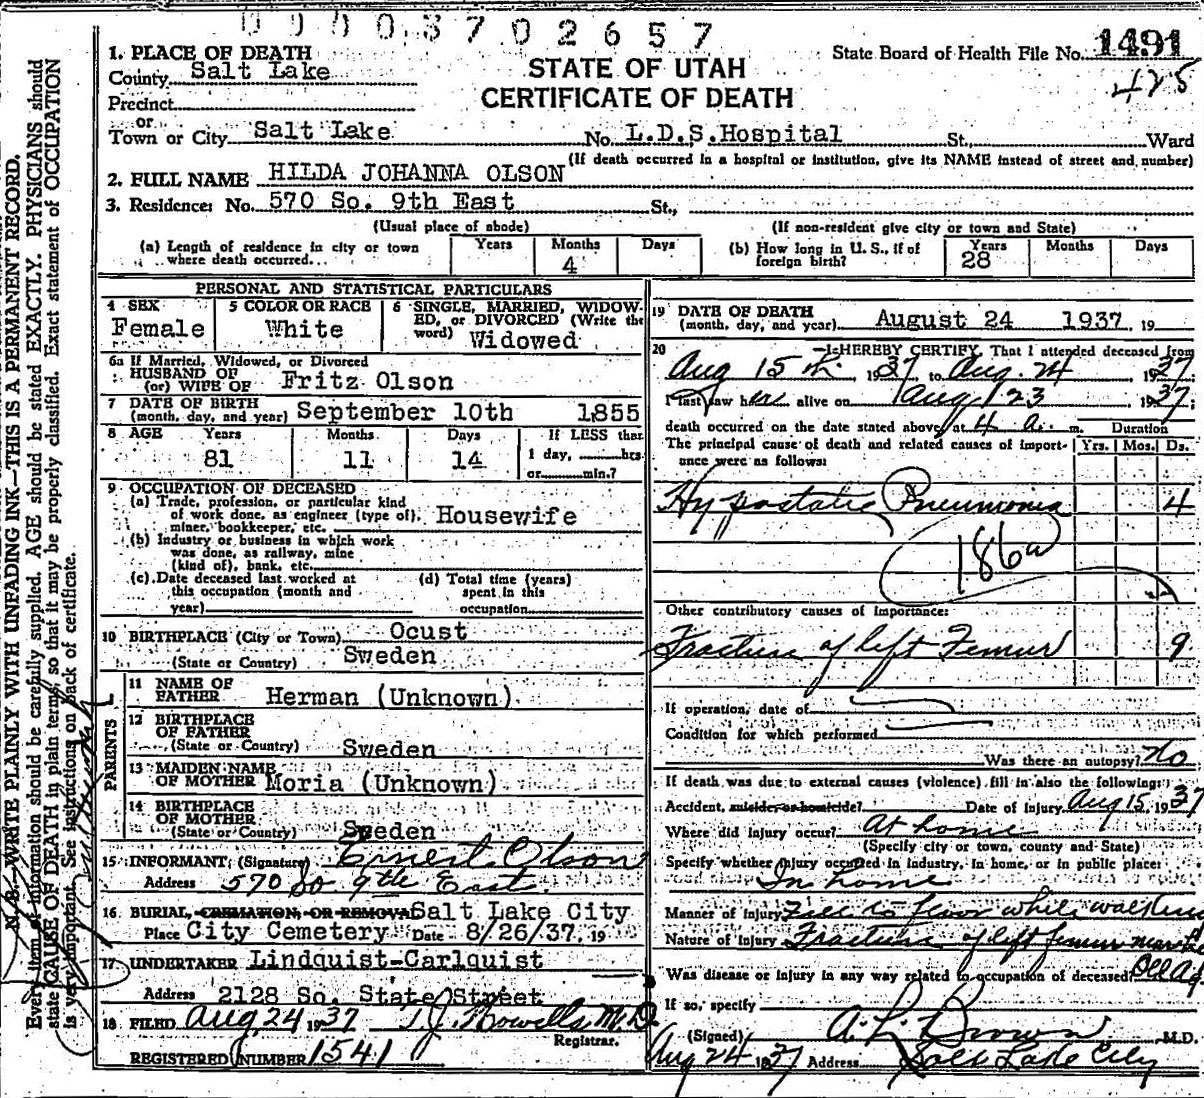 00003702657
State Board of Health File No. 1491
425
STATE OF UTAH
CERTIFICATE OF DEATH
1. PLACE OF DEATH
County Salt Lake
Precinct
or
Town or City Salt Lake No. L.D.S. Hospital St., Ward
(If death occurred in a hospital or institution, give its NAME instead of street and number)
2. FULL NAME HILDA JOHANNA OLSON
3. Residence: No. 570 So. 9th East St.,
(Usual place of abode) (If non-resident give city or town and State)
(a) Length of residence in city or town where death occurred... Years Months 4 Days
(b) How long in U. S., if of foreign birth? Years 28 Months Days
PERSONAL AND STATISTICAL PARTICULARS
4 SEX Female
5 COLOR OR RACE White
6 SINGLE, MARRIED, WIDOWED, or DIVORCED (Write the word) Widowed
6a If Married, Widowed, or Divorced
HUSBAND OF
(or) WIFE OF Fritz Olson
7 DATE OF BIRTH
(month, day, and year) September 10th 1855
8 AGE Years Months Days If LESS than
81 11 14 1 day, hrs.
or min.?
9 OCCUPATION OF DECEASED
(a) Trade, profession, or particular kind
of work done, as engineer (type of),
miner, bookkeeper, etc. Housewife
(b) Industry or business in which work
was done, as railway, mine
(kind of), bank, etc.
(c) Date deceased last worked at
this occupation (month and
year)
(d) Total time (years)
spent in this
occupation
10 BIRTHPLACE (City or Town) Ocust
(State or Country) Sweden
PARENTS
11 NAME OF
FATHER Herman (Unknown)
12 BIRTHPLACE
OF FATHER
(State or Country) Sweden
13 MAIDEN NAME
OF MOTHER Moria (Unknown)
14 BIRTHPLACE
OF MOTHER
(State or Country) Sweden
15 INFORMANT, (Signature) Ernest Olson
Address 570 So 9th East
16 BURIAL, CREMATION, OR REMOVAL Salt Lake City
Place City Cemetery Date 8/26/37, 19
17 UNDERTAKER Lindquist-Carlquist
Address 2128 So. State Street
18 FILED Aug 24 1937 T J Howells M.D.
Registrar.
REGISTERED NUMBER 1541
19 DATE OF DEATH
(month, day, and year) August 24 1937, 19
20 I HEREBY CERTIFY, That I attended deceased from
Aug 15th, 1937 to Aug. 24 1937
I last saw her alive on Aug 23 1937
death occurred on the date stated above, at 4 a. m. Duration
The principal cause of death and related causes of importance were as follows: Yrs. Mos. Ds.
Hypostatic Pneumonia 4
186a
Other contributory causes of importance:
Fracture of left Femur 9
If operation, date of
Condition for which performed
Was there an autopsy? No
If death was due to external causes (violence) fill in also the following:
Accident, suicide, or homicide? Date of Injury Aug 15, 1937
Where did injury occur? At home
(Specify city or town, county and State)
Specify whether injury occurred in industry, in home, or in public place:
In home
Manner of Injury Fell to floor while walking
Nature of Injury Fracture of left femur
Was disease or injury in any way related to occupation of deceased? Old Age
If so, specify
(Signed) A. L. Brown M.D.
Aug 24 1937 Address Salt Lake City
N. B.—WRITE PLAINLY WITH UNFADING INK—THIS IS A PERMANENT RECORD.
Every item of information should be carefully supplied. AGE should be stated EXACTLY. PHYSICIANS should
state CAUSE OF DEATH in plain terms, so that it may be properly classified. Exact statement of OCCUPATION
is very important. See instructions on back of certificate.